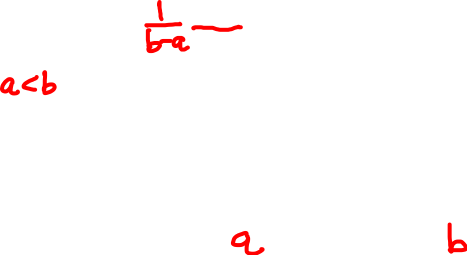 1/(b-a) —
a<b
a b